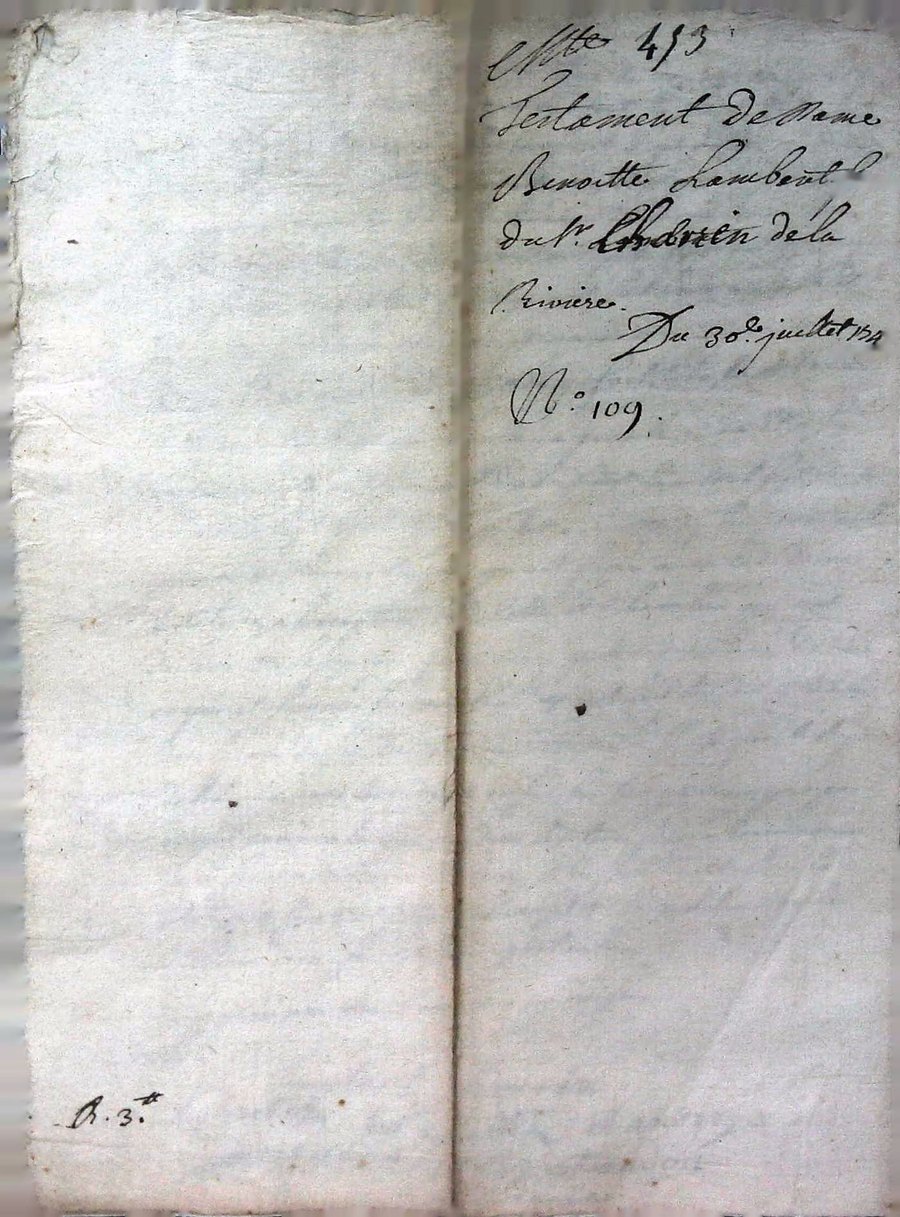 453
Testament de Dame
Benoitte Lambert
du Sr. de la
Riviere.
Du 30e. juillet 174
N.o 109.
R. 3.tt